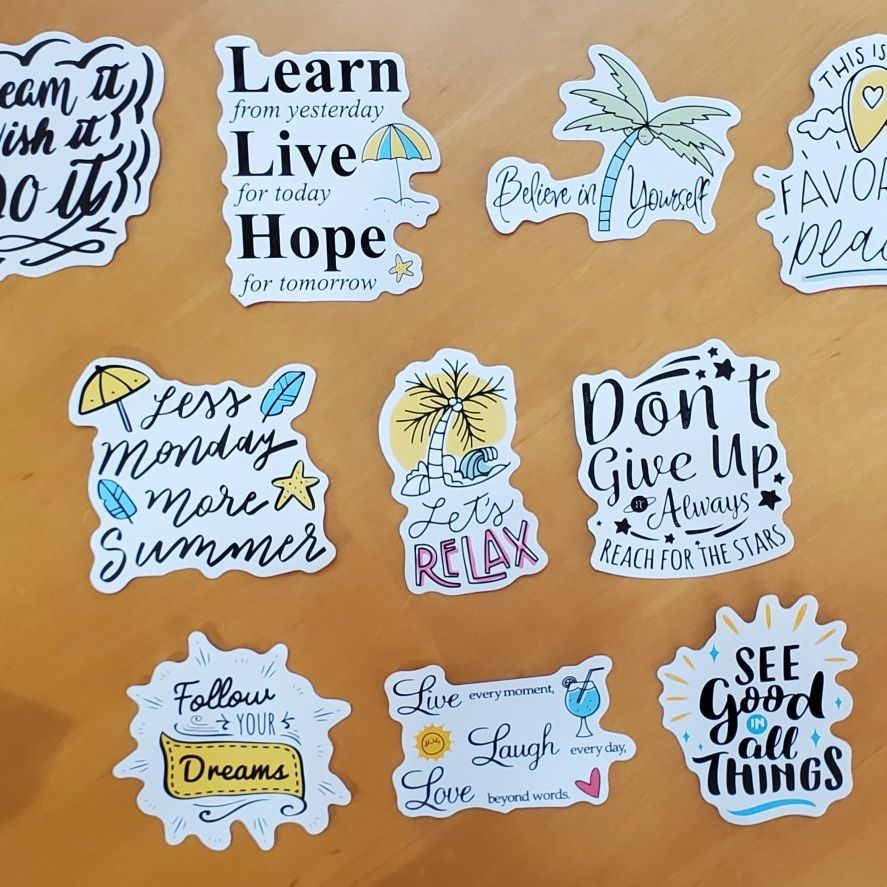 eam it
ish it
o it
Learn
from yesterday
Live
for today
Hope
for tomorrow
Believe in Yourself
THIS IS
FAVO
plac
Less
Monday
More
Summer
Let's
RELAX
Don't
Give Up
Always
REACH FOR THE STARS
Follow
YOUR
Dreams
Live every moment,
Laugh every day,
Love beyond words.
SEE
Good
IN
all
THINGS